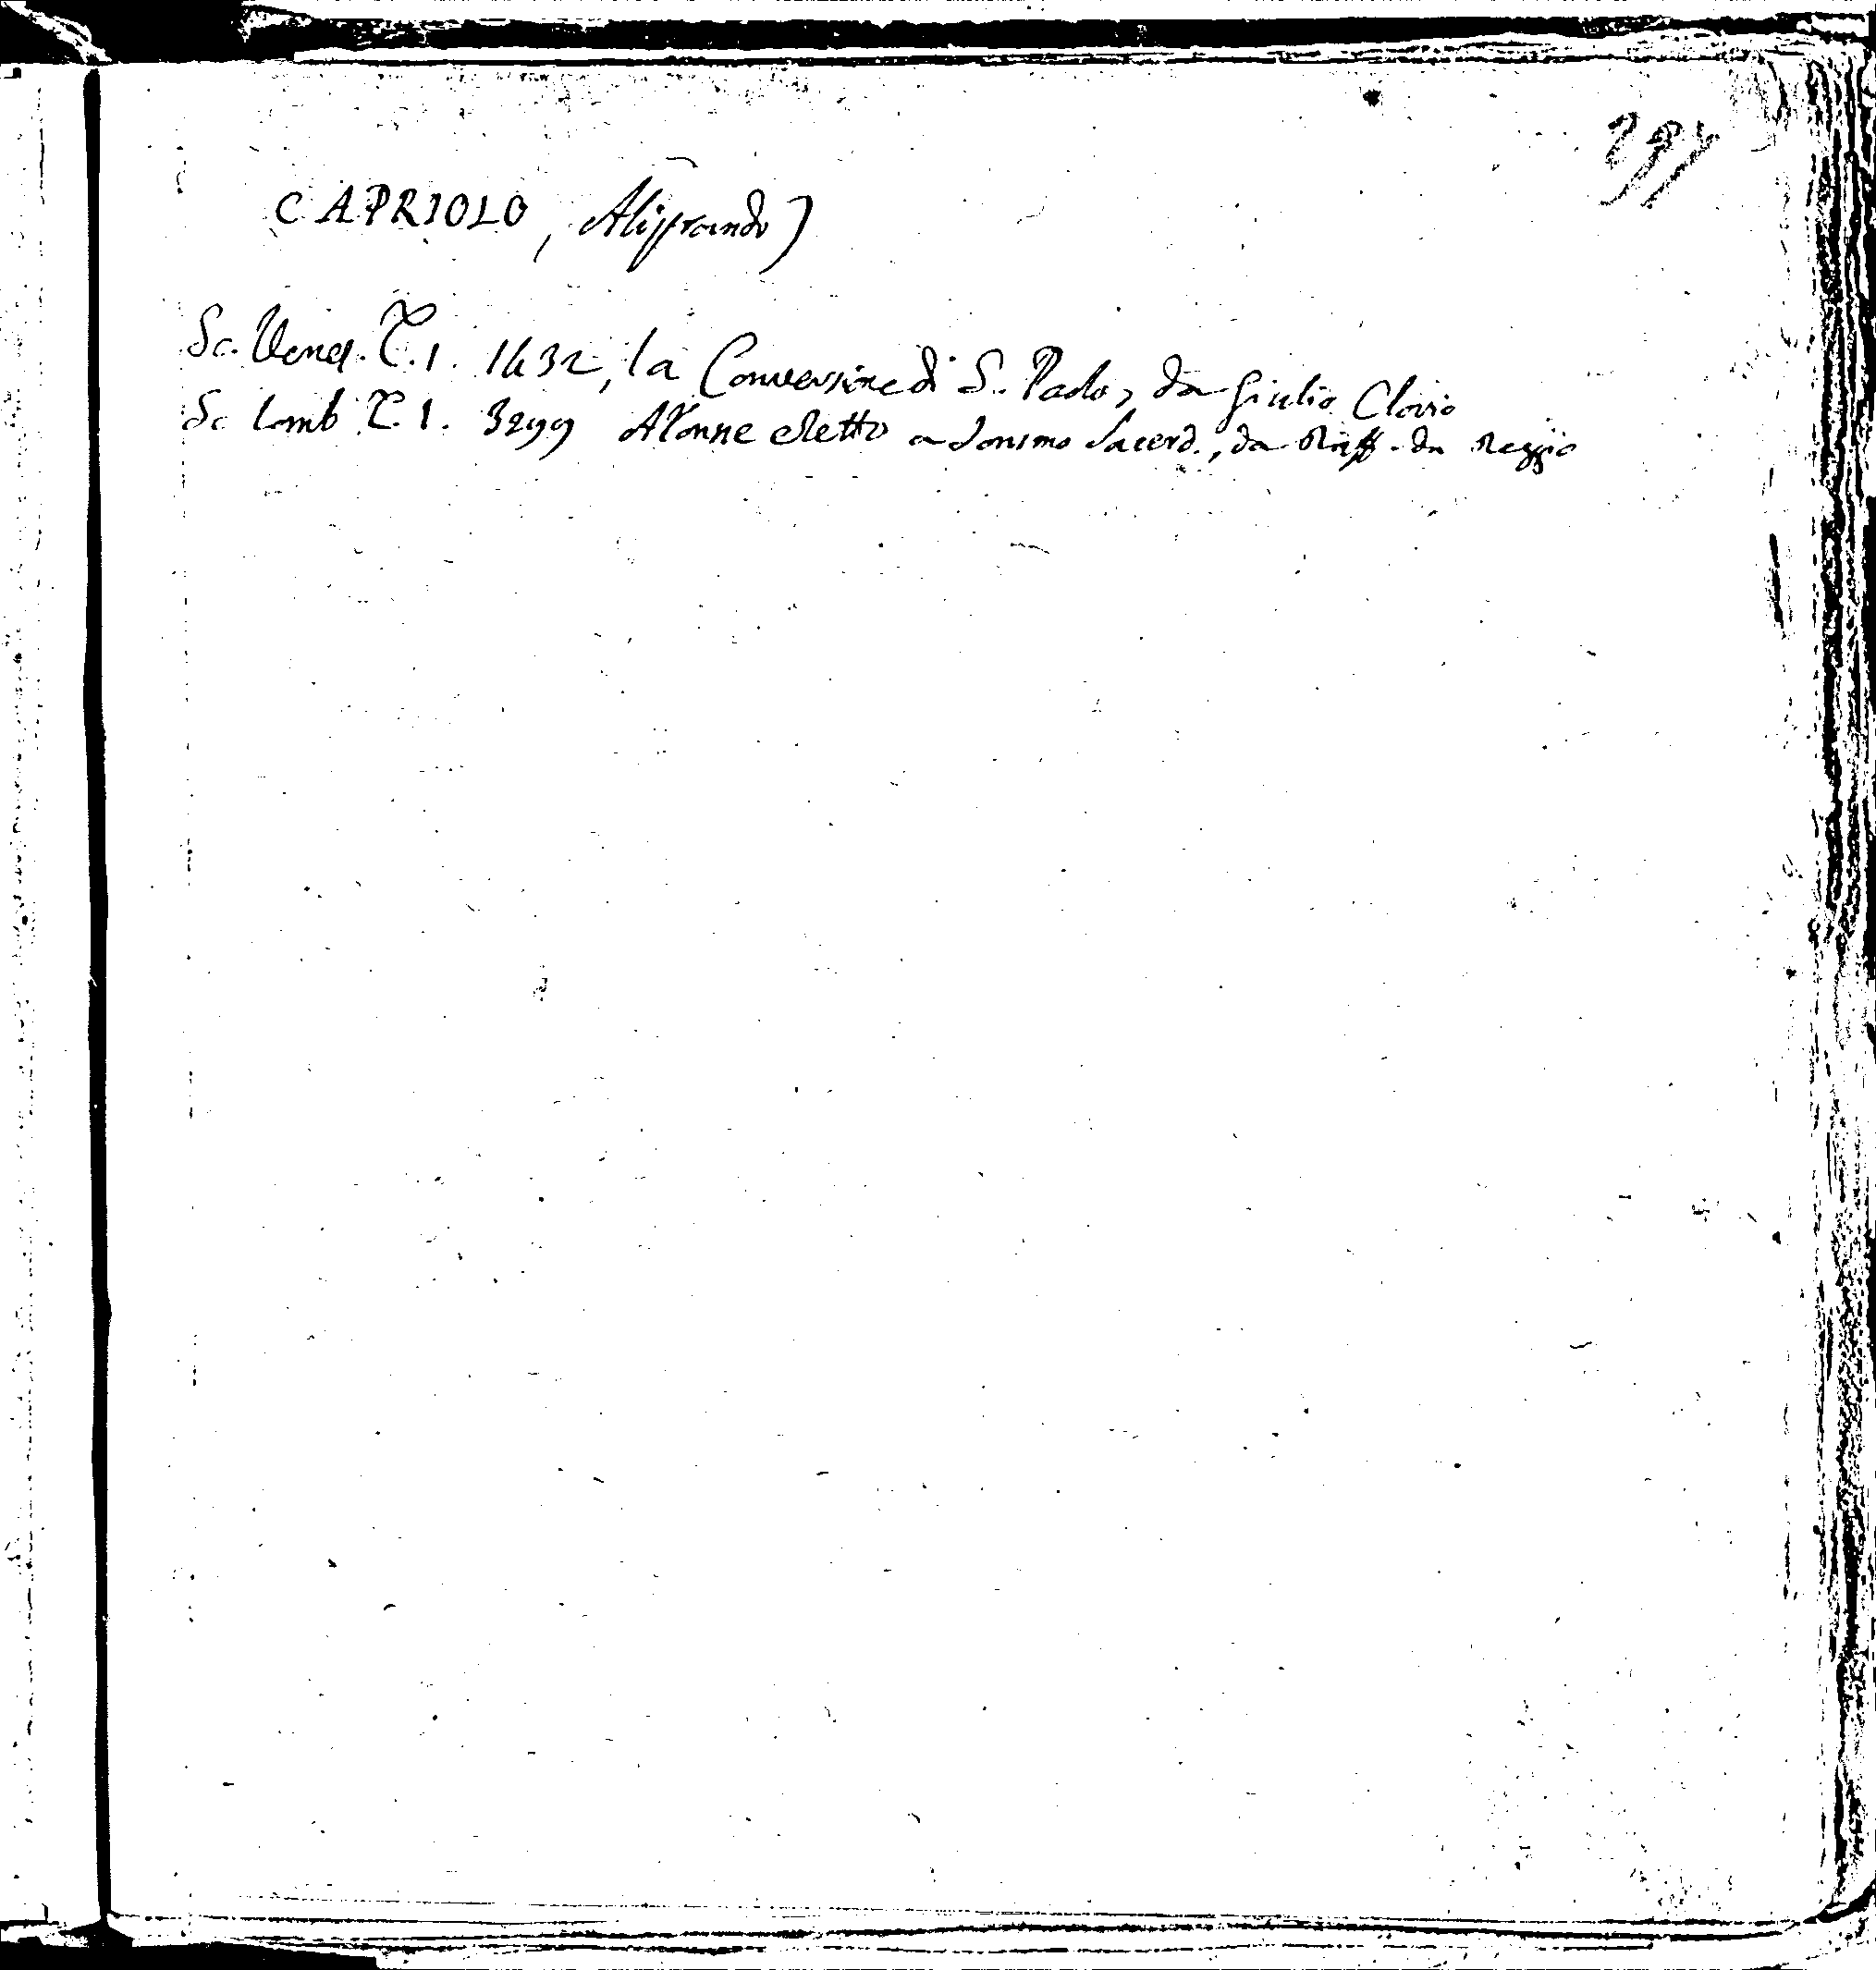 297
CAPRIOLO, Aliprando)
Sc. Venez. T. 1. 1432, la Conversione di S. Paolo, da Giulio Clovio
Sc Lomb T. 1. 3299 Aronne eletto a Somмo Sacerd., da Raff. da Reggio